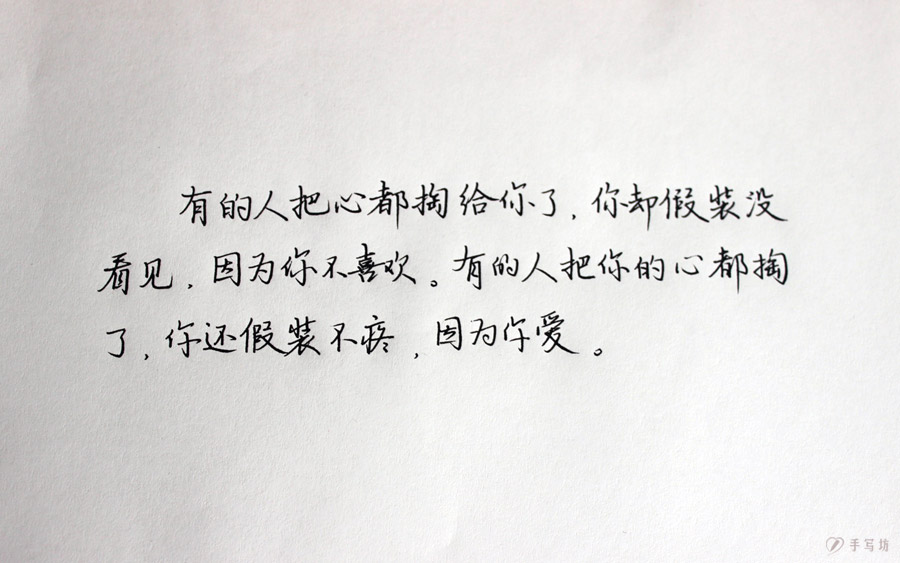 有的人把心都掏给你了，你却假装没
看见，因为你不喜欢。有的人把你的心都掏
了，你还假装不疼，因为你爱。
手写坊